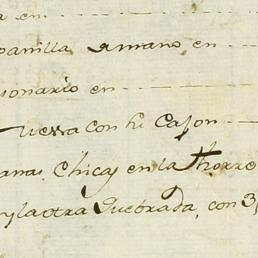 en
panilla de mano en
sionario en
Messa con su Cajon
anas, Chicas en la Thorre
y la otra Quebrada, con 3